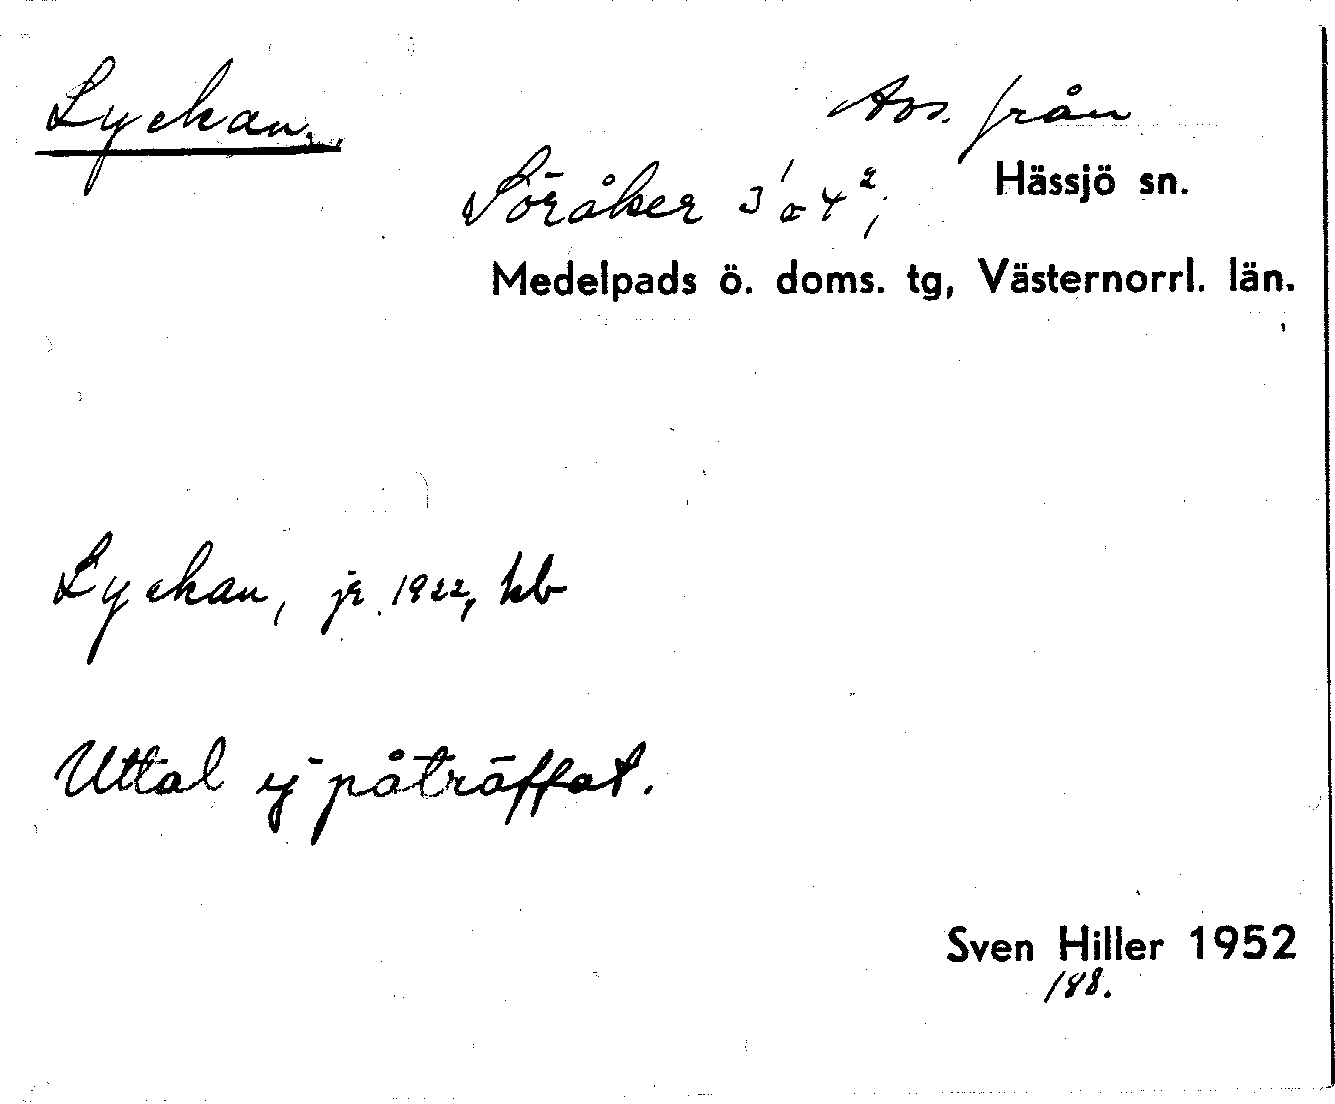 Lyckan.
Avs. från
Söråker 3¹ o 4², Hässjö sn.
Medelpads ö. doms. tg, Västernorrl. län.
Lyckan, jr 1922, kb
Uttal ej påträffat.
Sven Hiller 1952
188.